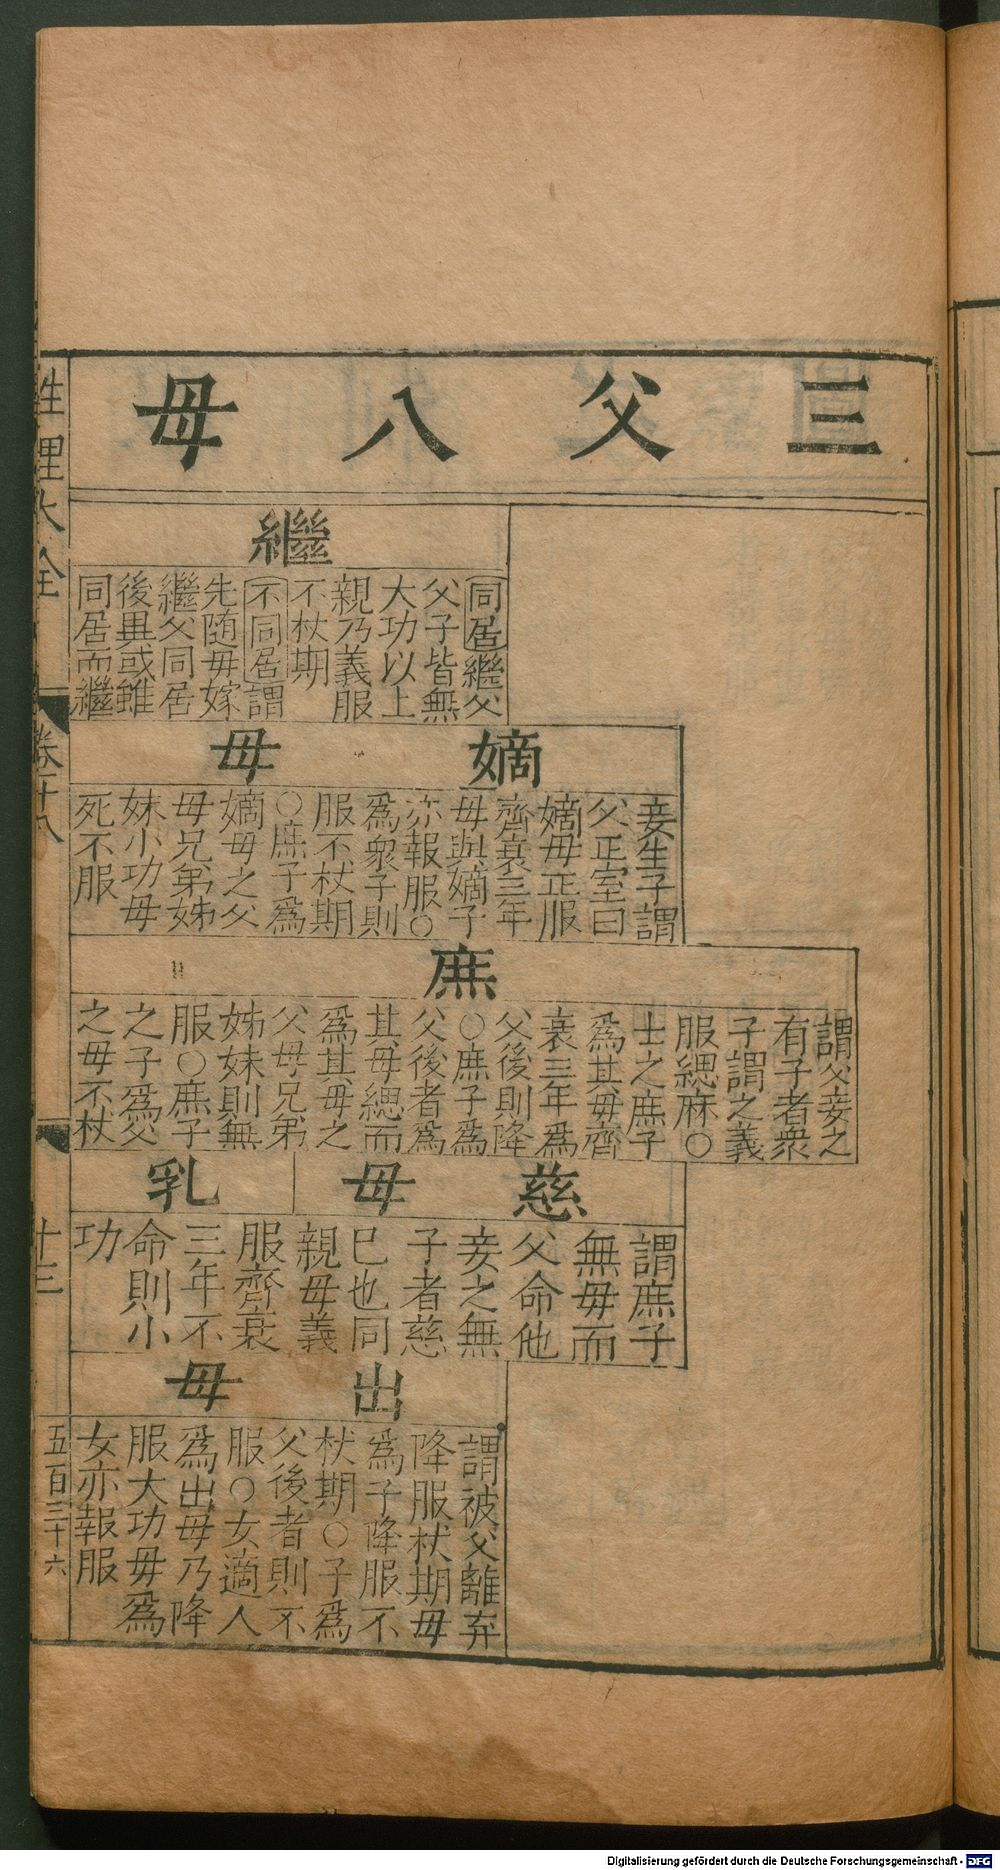 三父八母
繼
同居繼父
父子皆無
大功以上
親乃義服
不杖期
不同居謂
先随母嫁
繼父同居
後異或雖
同居而繼
嫡母
妾生子謂
父正室曰
嫡母正服
齊衰三年
母與嫡子
亦報服○
爲衆子則
服不杖期
○庶子爲
嫡母之父
母兄弟姊
妹小功母
死不服
庶
謂父妾之
有子者衆
子謂之義
服緦麻○
士之庶子
爲其母齊
衰三年爲
父後則降
○庶子爲
父後者爲
其母緦而
爲其母之
父母兄弟
姊妹則無
服○庶子
之子爲父
之母不杖
慈母
乳
謂庶子
無母而
父命他
妾之無
子者慈
巳也同
親母義
服齊衰
三年不
命則小
功
出母
謂被父離弃
降服杖期母
爲子降服不
杖期○子爲
父後者則不
服○女適人
爲出母乃降
服大功母爲
女亦報服
性理大全
卷十八
十三
五百三十六
Digitalisierung gefördert durch die Deutsche Forschungsgemeinschaft - DFG